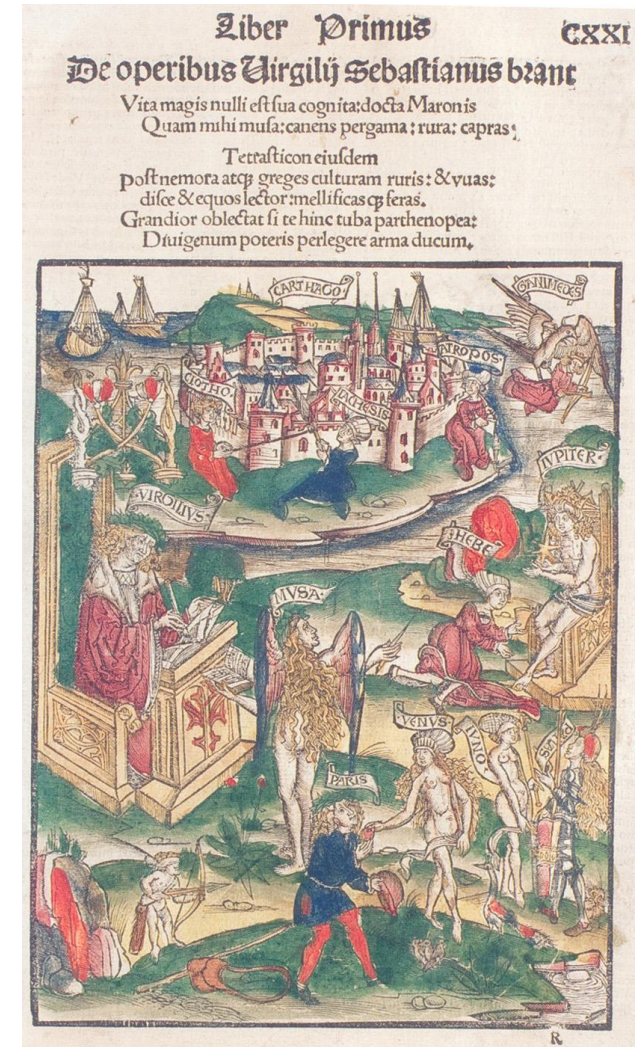 Liber Primus
CXXI
De operibus Uirgilij Sebastianus brant
Vita magis nulli est sua cognita: docta Maronis
Quam mihi musa: canens pergama: rura: capras:
Tetrasticon eiusdem
Post nemora atq; greges culturam ruris: & vuas:
disce & equos lector: mellificas q; feras.
Grandior oblectat si te hinc tuba parthenopea:
Diuigenum poteris perlegere arma ducum.
CARTHAGO
GANIMEDES
ATROPOS
CLOTHO
LACHESIS
IVPITER
VIRGILIVS
HEBE
MVSA
VENVS
IVNO
PALLAS
PARIS
R